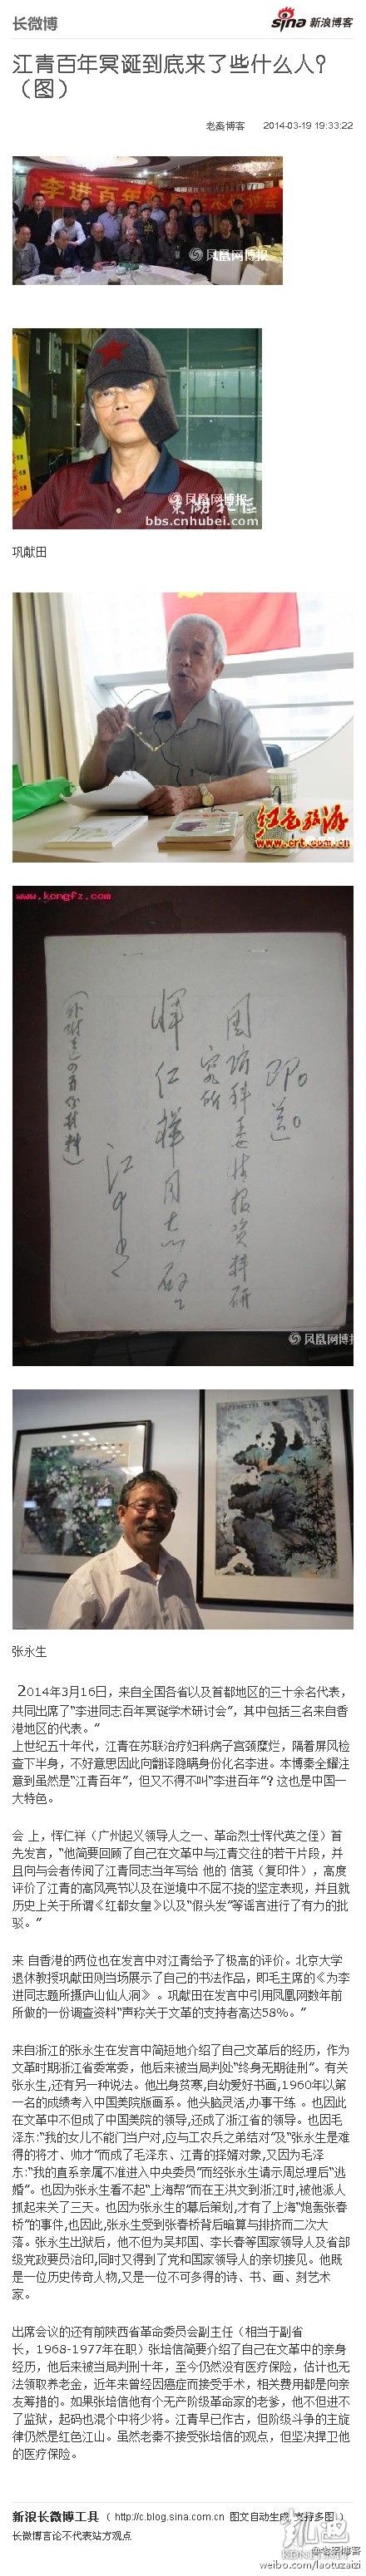 长微博
sina 新浪博客
江青百年冥诞到底来了些什么人?
(图)
老秦博客 2014-03-19 19:33:22
李进百年
凤凰网博报
凤凰网博报
东湖社区
bbs.cnhubei.com
巩献田
红色旅游
www.crt.com.cn
www.kongfz.com
邵送
国防科委情报资料研
究所
恽仁祥同志启
江青
凤凰网博报
张永生
2014年3月16日，来自全国各省以及首都地区的三十余名代表，
共同出席了“李进同志百年冥诞学术研讨会”，其中包括三名来自香
港地区的代表。”
上世纪五十年代，江青在苏联治疗妇科病子宫颈糜烂，隔着屏风检
查下半身，不好意思因此向翻译隐瞒身份化名李进。本博秦全耀注
意到虽然是“江青百年”，但又不得不叫“李进百年”？这也是中国一
大特色。
会 上，恽仁祥（广州起义领导人之一、革命烈士恽代英之侄）首
先发言，“他简要回顾了自己在文革中与江青交往的若干片段，并
且向与会者传阅了江青同志当年写给 他的 信笺（复印件），高度
评价了江青的高风亮节以及在逆境中不屈不挠的坚定表现，并且就
历史上关于所谓《红都女皇》以及“假头发”等谣言进行了有力的批
驳。”
来 自香港的两位也在发言中对江青给予了极高的评价。北京大学
退休教授巩献田则当场展示了自己的书法作品，即毛主席的《为李
进同志题所摄庐山仙人洞》 。巩献田在发言中引用凤凰网数年前
所做的一份调查资料“声称关于文革的支持者高达58%。”
来自浙江的张永生在发言中简短地介绍了自己文革后的经历，作为
文革时期浙江省委常委，他后来被当局判处“终身无期徒刑”。有关
张永生,还有另一种说法。他出身贫寒,自幼爱好书画,1960年以第
一名的成绩考入中国美院版画系。他头脑灵活,办事干练 。也因此
在文革中不但成了中国美院的领导,还成了浙江省的领导。也因毛
泽东:“我的女儿不能门当户对,应与工农兵之弟结对”及“张永生是难
得的将才、帅才”而成了毛泽东、江青的择婿对象,又因为毛泽
东:“我的直系亲属不准进入中央委员”而经张永生请示周总理后“逃
婚”。也因为张永生看不起“上海帮”而在王洪文到浙江时,被他派人
抓起来关了三天。也因为张永生的幕后策划,才有了上海“炮轰张春
桥”的事件,也因此,张永生受到张春桥背后暗算与排挤而二次大
落。张永生出狱后，他不但为吴邦国、李长春等国家领导人及省部
级党政要员治印,同时又得到了党和国家领导人的亲切接见。他既
是一位历史传奇人物,又是一位不可多得的诗、书、画、刻艺术
家。
出席会议的还有前陕西省革命委员会副主任（相当于副省
长，1968-1977年在职）张培信简要介绍了自己在文革中的亲身
经历，他后来被当局判刑十年，至今仍然没有医疗保险，估计也无
法领取养老金，近年来曾经因癌症而接受手术，相关费用都是向亲
友筹措的。如果张培信他有个无产阶级革命家的老爹，他不但进不
了监狱，起码也混个中将少将。江青早已作古，但阶级斗争的主旋
律仍然是红色江山。虽然老秦不接受张培信的观点，但坚决捍卫他
的医疗保险。
新浪长微博工具（ http://c.blog.sina.com.cn 图文自动生成,支持多图）
长微博言论不代表站方观点
凯迪
KDNET.NET
@老秦博客
weibo.com/laotuzaizi